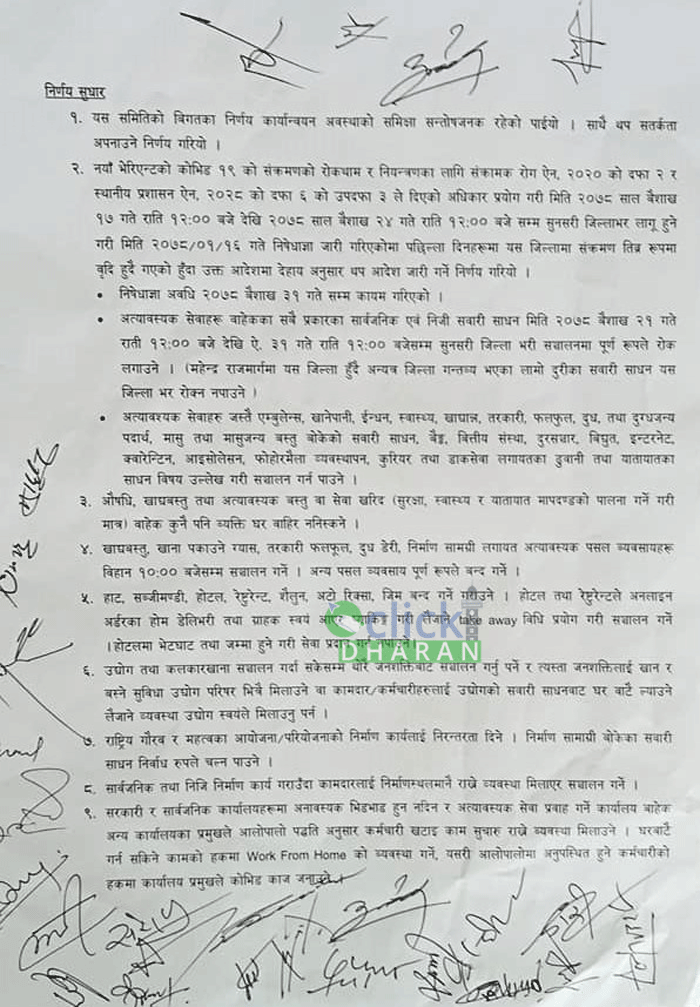 निर्णय सुधार
१. यस समितिको बिगतका निर्णय कार्यान्वयन अवस्थाको समिक्षा सन्तोषजनक रहेको पाईयो । साथै थप सतर्कता
अपनाउने निर्णय गरियो ।
२. नयाँ भेरिएन्टको कोभिड १९ को संक्रमणको रोकथाम र नियन्त्रणका लागि संक्रामक रोग ऐन, २०२० को दफा २ र
स्थानीय प्रशासन ऐन, २०२८ को दफा ६ को उपदफा ३ ले दिएको अधिकार प्रयोग गरी मिति २०७८ साल बैशाख
१७ गते राति १२:०० बजे देखि २०७८ साल बैशाख २४ गते राति १२:०० बजे सम्म सुनसरी जिल्लाभर लागू हुने
गरी मिति २०७८/०१/१६ गते निषेधाज्ञा जारी गरिएकोमा पछिल्ला दिनहरूमा यस जिल्लामा संक्रमण तिब्र रूपमा
वृदि हुदै गएको हुँदा उक्त आदेशमा देहाय अनुसार थप आदेश जारी गर्ने निर्णय गरियो ।
• निषेधाज्ञा अवधि २०७८ बैशाख ३१ गते सम्म कायम गरिएको ।
• अत्यावस्यक सेवाहरू वाहेकका सबै प्रकारका सार्वजनिक एवं निजी सवारी साधन मिति २०७८ बैशाख २१ गते
राती १२:०० बजे देखि ऐ. ३१ गते राति १२:०० बजेसम्म सुनसरी जिल्ला भरी सञ्चालनमा पूर्ण रूपले रोक
लगाउने । (महेन्द्र राजमार्गमा यस जिल्ला हुँदै अन्यत्र जिल्ला गन्तव्य भएका लामो दुरीका सवारी साधन यस
जिल्ला भर रोक्न नपाउने )
• अत्यावश्यक सेवाहरु जस्तै एम्बुलेन्स, खानेपानी, ईन्धन, स्वास्थ्य, खाद्यान्न, तरकारी, फलफुल, दुध, तथा दुग्धजन्य
पदार्थ, मासु तथा मासुजन्य बस्तु बोकेको सवारी साधन, बैङ्क, बित्तीय संस्था, दुरसञ्चार, बिधुत, इन्टरनेट,
क्वारेन्टिन, आइसोलेसन, फोहोरमैला व्यवस्थापन, कुरियर तथा डाकसेवा लगायतका ढुवानी तथा यातायातका
साधन विषय उल्लेख गरी सञ्चालन गर्न पाउने ।
३. औषधि, खाद्यबस्तु तथा अत्यावस्यक बस्तु वा सेवा खरिद (सुरक्षा, स्वास्थ्य र यातायात मापदण्डको पालना गर्ने गरी
मात्र) वाहेक कुनै पनि ब्यक्ति घर वाहिर ननिस्कने ।
४. खाद्यबस्तु, खाना पकाउने ग्यास, तरकारी फलफूल, दुध डेरी, निर्माण सामग्री लगायत अत्यावस्यक पसल ब्यवसायहरू
विहान १०:०० बजेसम्म सञ्चालन गर्ने । अन्य पसल ब्यवसाय पूर्ण रूपले बन्द गर्ने ।
५. हाट, सब्जीमण्डी, होटल, रेष्टुरेन्ट, शैलुन, अटो रिक्सा, जिम बन्द गर्ने गरीउने । होटल तथा रेष्टुरेन्टले अनलाइन
अर्डरका होम डेलिभरी तथा ग्राहक स्वयं आएर प्याकिङ गरी लैजाने take away बिधि प्रयोग गरी सञ्चालन गर्ने
।होटलमा भेटघाट तथा जम्मा हुने गरी सेवा प्रदान गर्न नपाउने।
click
DHARAN
६. उद्योग तथा कलकारखाना सञ्चालन गर्दा सकेसम्म थोरै जनशक्तिबाट सञ्चालन गर्नु पर्ने र त्यस्ता जनशक्तिलाई खान र
बस्ने सुविधा उद्योग परिषर भित्रै मिलाउने वा कामदार/कर्मचारीहरुलाई उद्योगको सवारी साधनवाट घर वाटै ल्याउने
लैजाने ब्यवस्था उद्योग स्वयंले मिलाउनु पर्न ।
७. राष्ट्रिय गौरव र महत्वका आयोजना/परियोजनाको निर्माण कार्यलाई निरन्तरता दिने । निर्माण सामाग्री बोकेका सवारी
साधन निर्वाध रुपले चल्न पाउने ।
८. सार्वजनिक तथा निजि निर्माण कार्य गराउँदा कामदारलाई निर्माणस्थलमानै राख्ने ब्यवस्था मिलाएर सञ्चालन गर्ने ।
९. सरकारी र सार्वजनिक कार्यालयहरूमा अनावस्यक भिडभाड हुन नदिन र अत्यावस्यक सेवा प्रवाह गर्ने कार्यालय बाहेक
अन्य कार्यालयका प्रमुखले आलोपालो पद्धति अनुसार कर्मचारी खटाइ काम सुचारु राख्ने ब्यवस्था मिलाउने । घरवाटै
गर्न सकिने कामको हकमा Work From Home को ब्यवस्था गर्ने, यसरी आलोपालोमा अनुपस्थित हुने कर्मचारीको
हकमा कार्यालय प्रमुखले कोभिड काज जनाउने ।